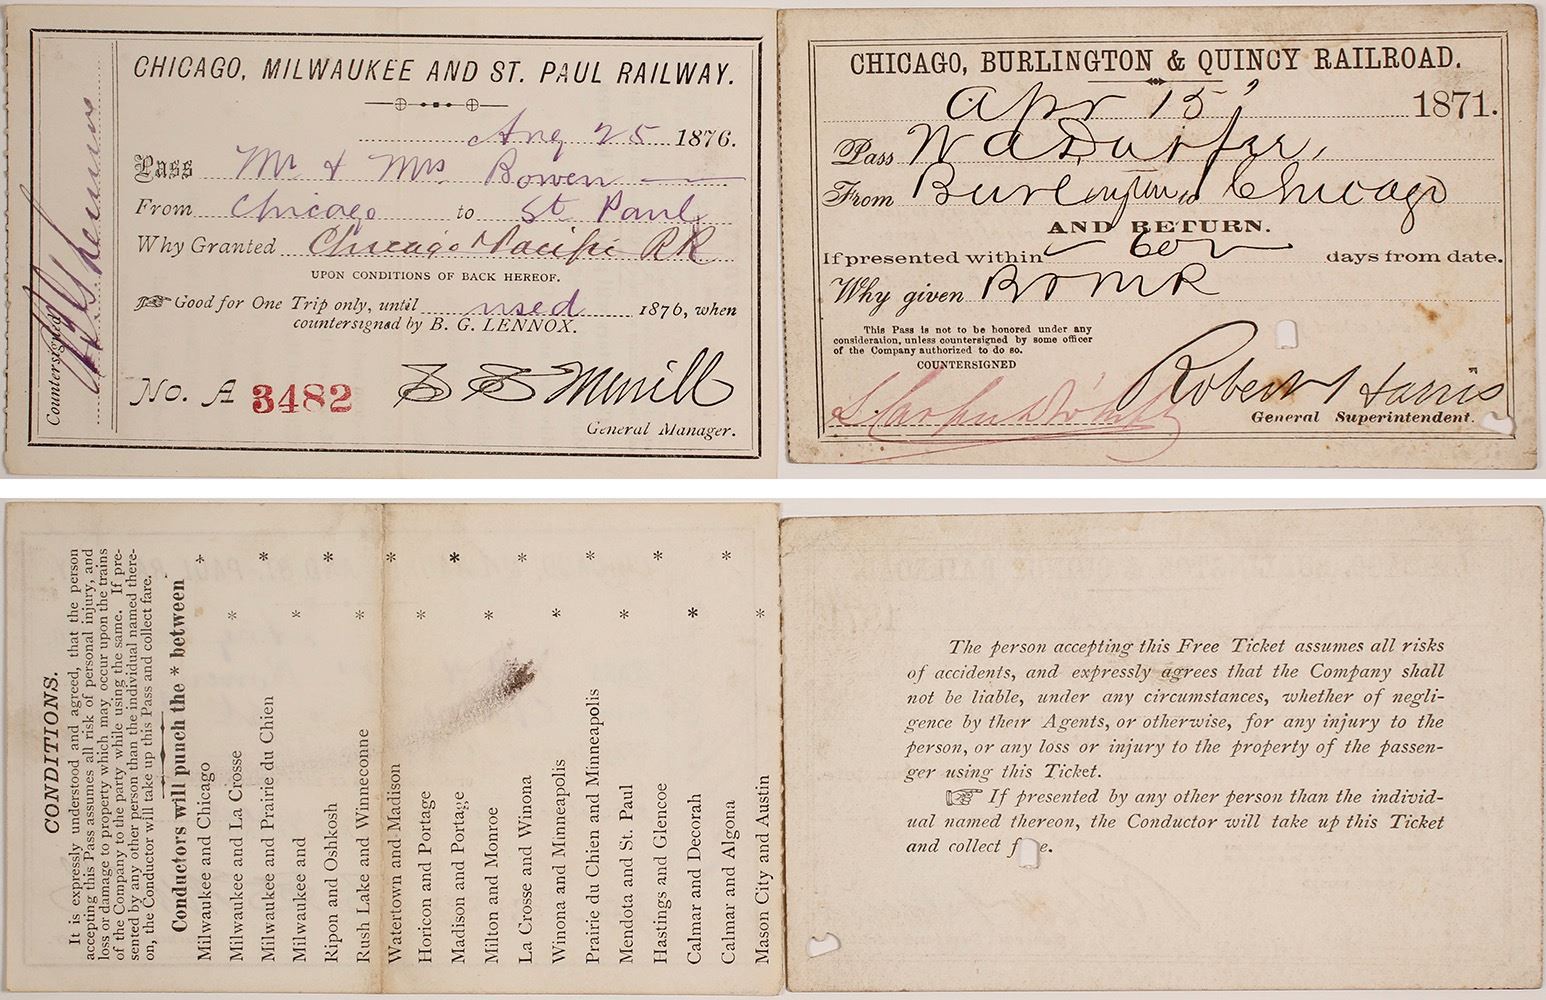 CHICAGO, MILWAUKEE AND ST. PAUL RAILWAY.
Aug 25 1876.
Pass Mr & Mrs Bowen
From Chicago to St Paul
Why Granted Chicago & Pacific RR
UPON CONDITIONS OF BACK HEREOF.
Good for One Trip only, until used 1876, when
countersigned by B. G. LENNOX.
No. A 3482 S S Merrill
General Manager.
Countersigned
CHICAGO, BURLINGTON & QUINCY RAILROAD.
Apr 15 1871.
Pass W A Durfer,
From Burlington to Chicago
AND RETURN.
If presented within 60 days from date.
Why given B & M R R
This Pass is not to be honored under any
consideration, unless countersigned by some officer
of the Company authorized to do so.
COUNTERSIGNED
Robert Harris
General Superintendent.
CONDITIONS.
It is expressly understood and agreed, that the person
accepting this Pass assumes all risk of personal injury, and
loss or damage to property which may occur upon the trains
of the Company to the party while using the same. If pre-
sented by any other person than the individual named there-
on, the Conductor will take up this Pass and collect fare.
Conductors will punch the * between
Milwaukee and Chicago *
Milwaukee and La Crosse *
Milwaukee and Prairie du Chien *
Milwaukee and *
Ripon and Oshkosh *
Rush Lake and Winneconne *
Watertown and Madison *
Horicon and Portage *
Madison and Portage *
Milton and Monroe *
La Crosse and Winona *
Winona and Minneapolis *
Prairie du Chien and Minneapolis *
Mendota and St. Paul *
Hastings and Glencoe *
Calmar and Decorah *
Calmar and Algona *
Mason City and Austin *
The person accepting this Free Ticket assumes all risks
of accidents, and expressly agrees that the Company shall
not be liable, under any circumstances, whether of negli-
gence by their Agents, or otherwise, for any injury to the
person, or any loss or injury to the property of the passen-
ger using this Ticket.
If presented by any other person than the individ-
ual named thereon, the Conductor will take up this Ticket
and collect f e.